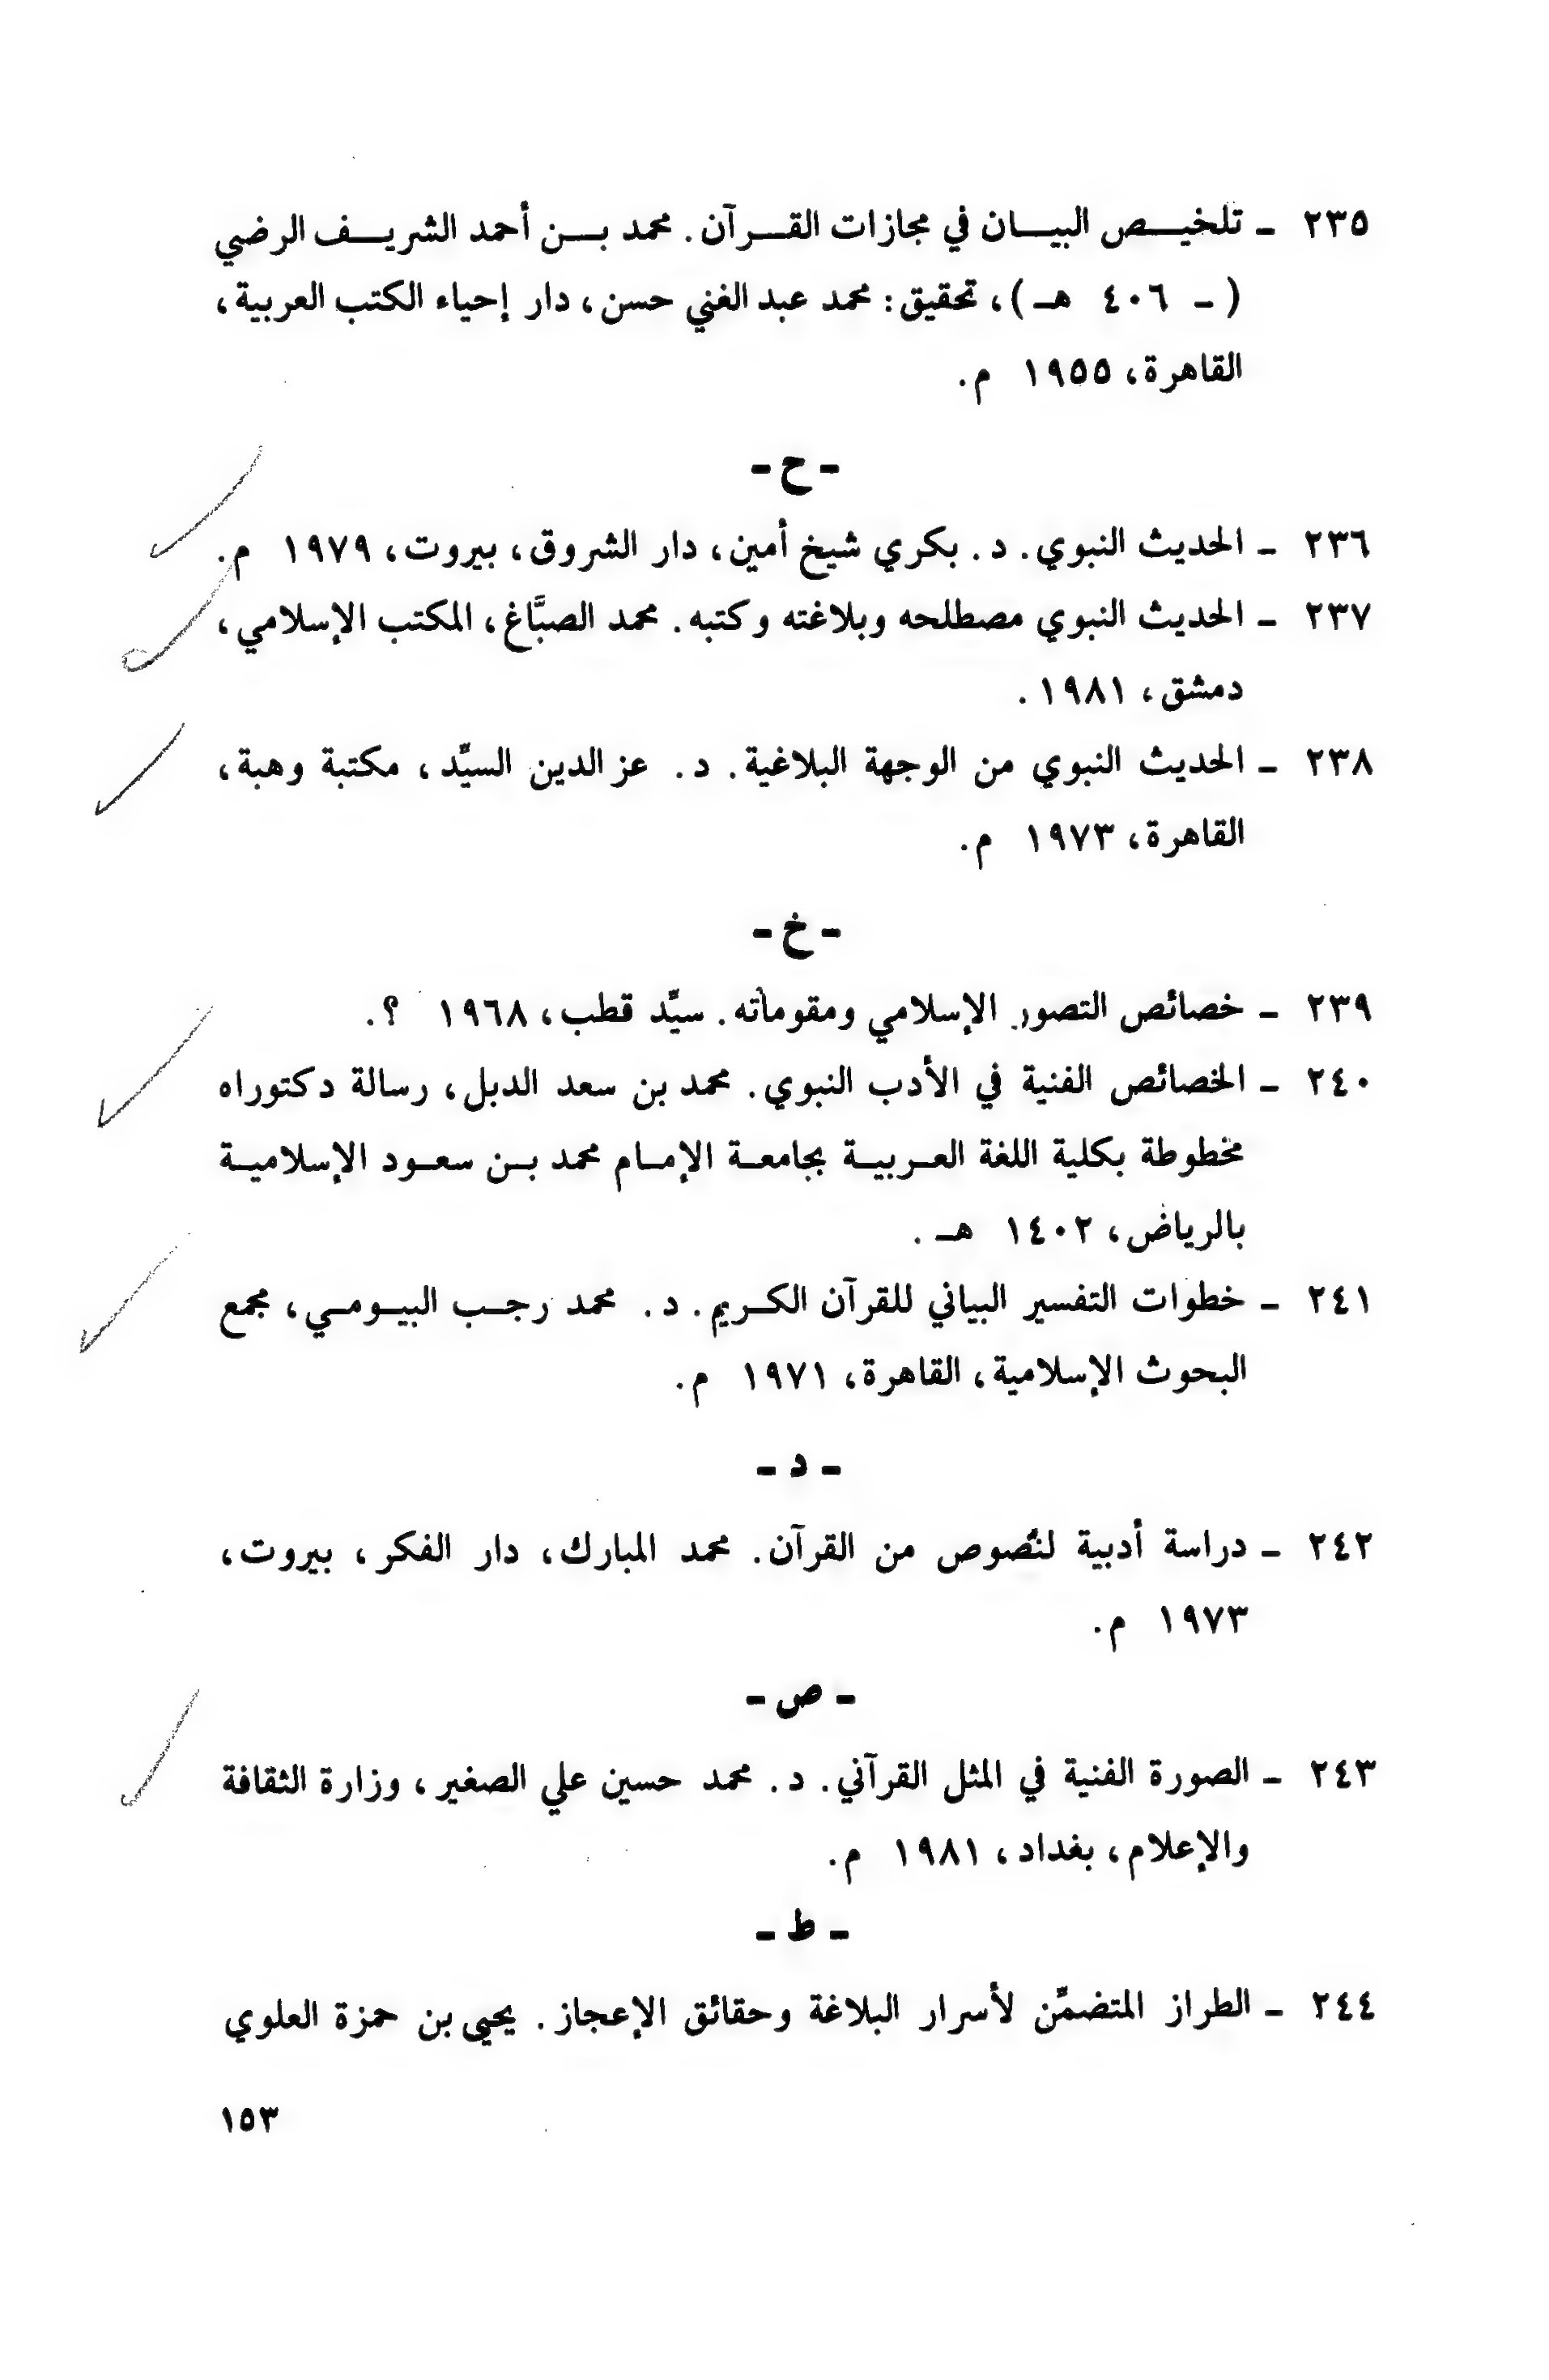 ٢٣٥ ـ تلخيـص البيـان في مجازات القـرآن. محمد بـن أحمد الشريـف الرضي
( ـ ٤٠٦ هـ)، تحقيق: محمد عبد الغني حسن، دار إحياء الكتب العربية،
القاهرة، ١٩٥٥ م.
ـ ح ـ
٢٣٦ ـ الحديث النبوي. د. بكري شيخ أمين، دار الشروق، بيروت، ١٩٧٩ م.
٢٣٧ ـ الحديث النبوي مصطلحه وبلاغته وكتبه. محمد الصبَّاغ، المكتب الإسلامي،
دمشق، ١٩٨١.
٢٣٨ ـ الحديث النبوي من الوجهة البلاغية. د. عز الدين السيِّد، مكتبة وهبة،
القاهرة، ١٩٧٣ م.
ـ خ ـ
٢٣٩ ـ خصائص التصور الإسلامي ومقوماته. سيِّد قطب، ١٩٦٨ ؟.
٢٤٠ ـ الخصائص الفنية في الأدب النبوي. محمد بن سعد الدبل، رسالة دكتوراه
مخطوطة بكلية اللغة العـربيـة بجامعـة الإمـام محمد بـن سعـود الإسلاميـة
بالرياض، ١٤٠٢ هـ.
٢٤١ ـ خطوات التفسير البياني للقرآن الكـريم. د. محمد رجـب البيـومـي، مجمع
البحوث الإسلامية، القاهرة، ١٩٧١ م.
ـ د ـ
٢٤٢ ـ دراسة أدبية لنُصوص من القرآن. محمد المبارك، دار الفكر، بيروت،
١٩٧٣ م.
ـ ص ـ
٢٤٣ ـ الصورة الفنية في المثل القرآني. د. محمد حسين علي الصغير، وزارة الثقافة
والإعلام، بغداد، ١٩٨١ م.
ـ ط ـ
٢٤٤ ـ الطراز المتضمِّن لأسرار البلاغة وحقائق الإعجاز. يحيى بن حمزة العلوي
١٥٣